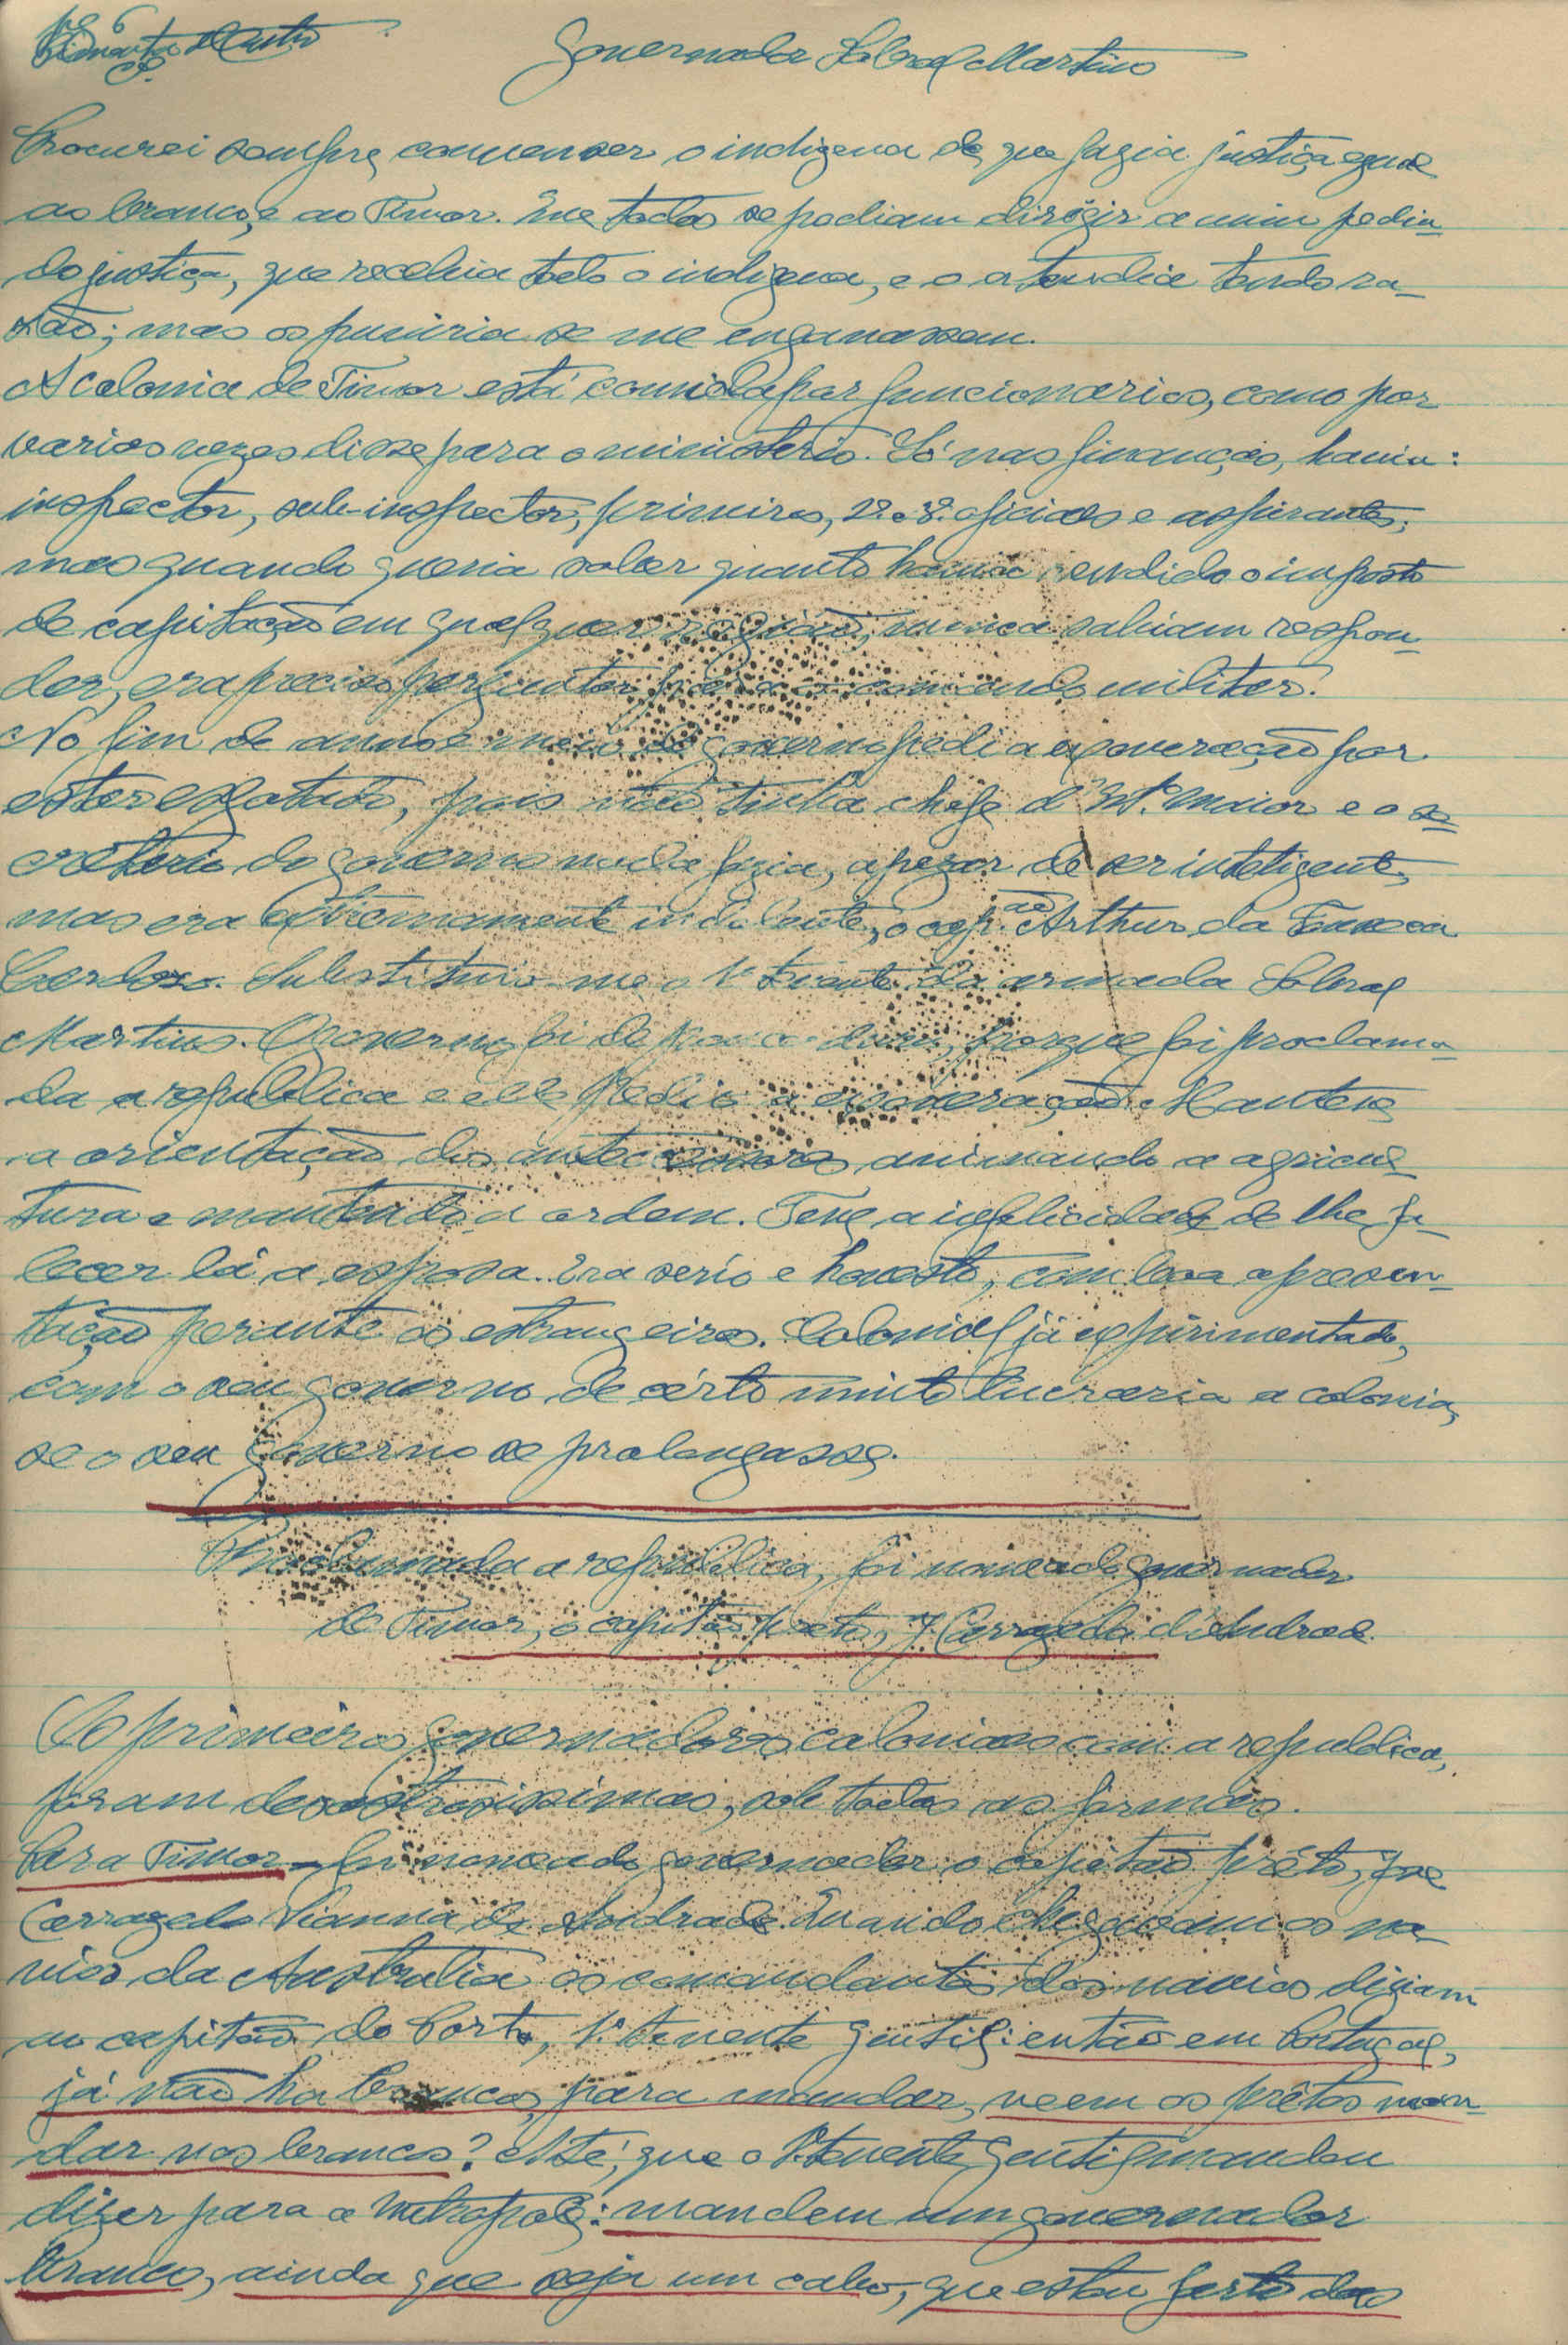 Governador Sobral Martins
Procurei sempre convencer o indigena de que fazia justiça egual
ao branco, e ao Timor. Que todos se podiam dirigir a mim pedin-
do justiça, que recebia todo o indigena, e o atendia tendo ra-
zão; mas os puniria se me enganassem.
A colonia de Timor está comida por funcionarios, como por
varias vezes disse para o ministerio. Só nas finanças, havia:
inspector, sub-inspector, primeiros, 2os. e 3os. oficiaes e aspirantes;
mas quando queria saber quanto havia rendido o imposto
de capitação em qualquer região, nunca sabiam respon-
der, era preciso perguntar para o comando militar.
No fim de anno e meio de governo pedi a exoneração por
estar exgotado, pois não tinha chefe d'Est.º Maior e o se-
cretario do governo nada fazia, apezar de ser inteligente,
mas era extremamente indolente, o cap.ão Arthur da Fonseca
Cardoso. Substituio-me o 1º tenente da armada Sobral
Martins. O governo foi de pouca dura, porque foi proclama-
da a republica e elle pedio a exoneração. Manteve
a orientação dos antecessores animando a agricul-
tura e mantendo a ordem. Teve a infelicidade de lhe fa-
lecer lá a esposa. Era serio e honesto, com boa apresen-
tação perante os estrangeiros. Colonial já expirimentado,
com o seu governo de certo muito lucraria a colonia,
se o seu governo se prolongasse.
Proclamada a republica, foi nomeado governador
de Timor, o capitão preto, J. Carrazeda d'Andrade.
Os primeiros governadores coloniaes com a republica,
foram desastrosissimos, sob todas as formas.
Para Timor - foi nomeado governador o capitão prêto, José
Carrazeda Vianna de Andrade. Quando chegavam os na-
vios da Australia os comandantes dos navios diziam
ao capitão do Porto, 1º tenente Gentil: então em Portugal,
já não ha brancos, para mandar, veem os prêtos man-
dar nos brancos? Até, que o 1º tenente Gentil mandou
dizer para a metropole: mandem um governador
branco, ainda que seja um cabo, que estou farto das